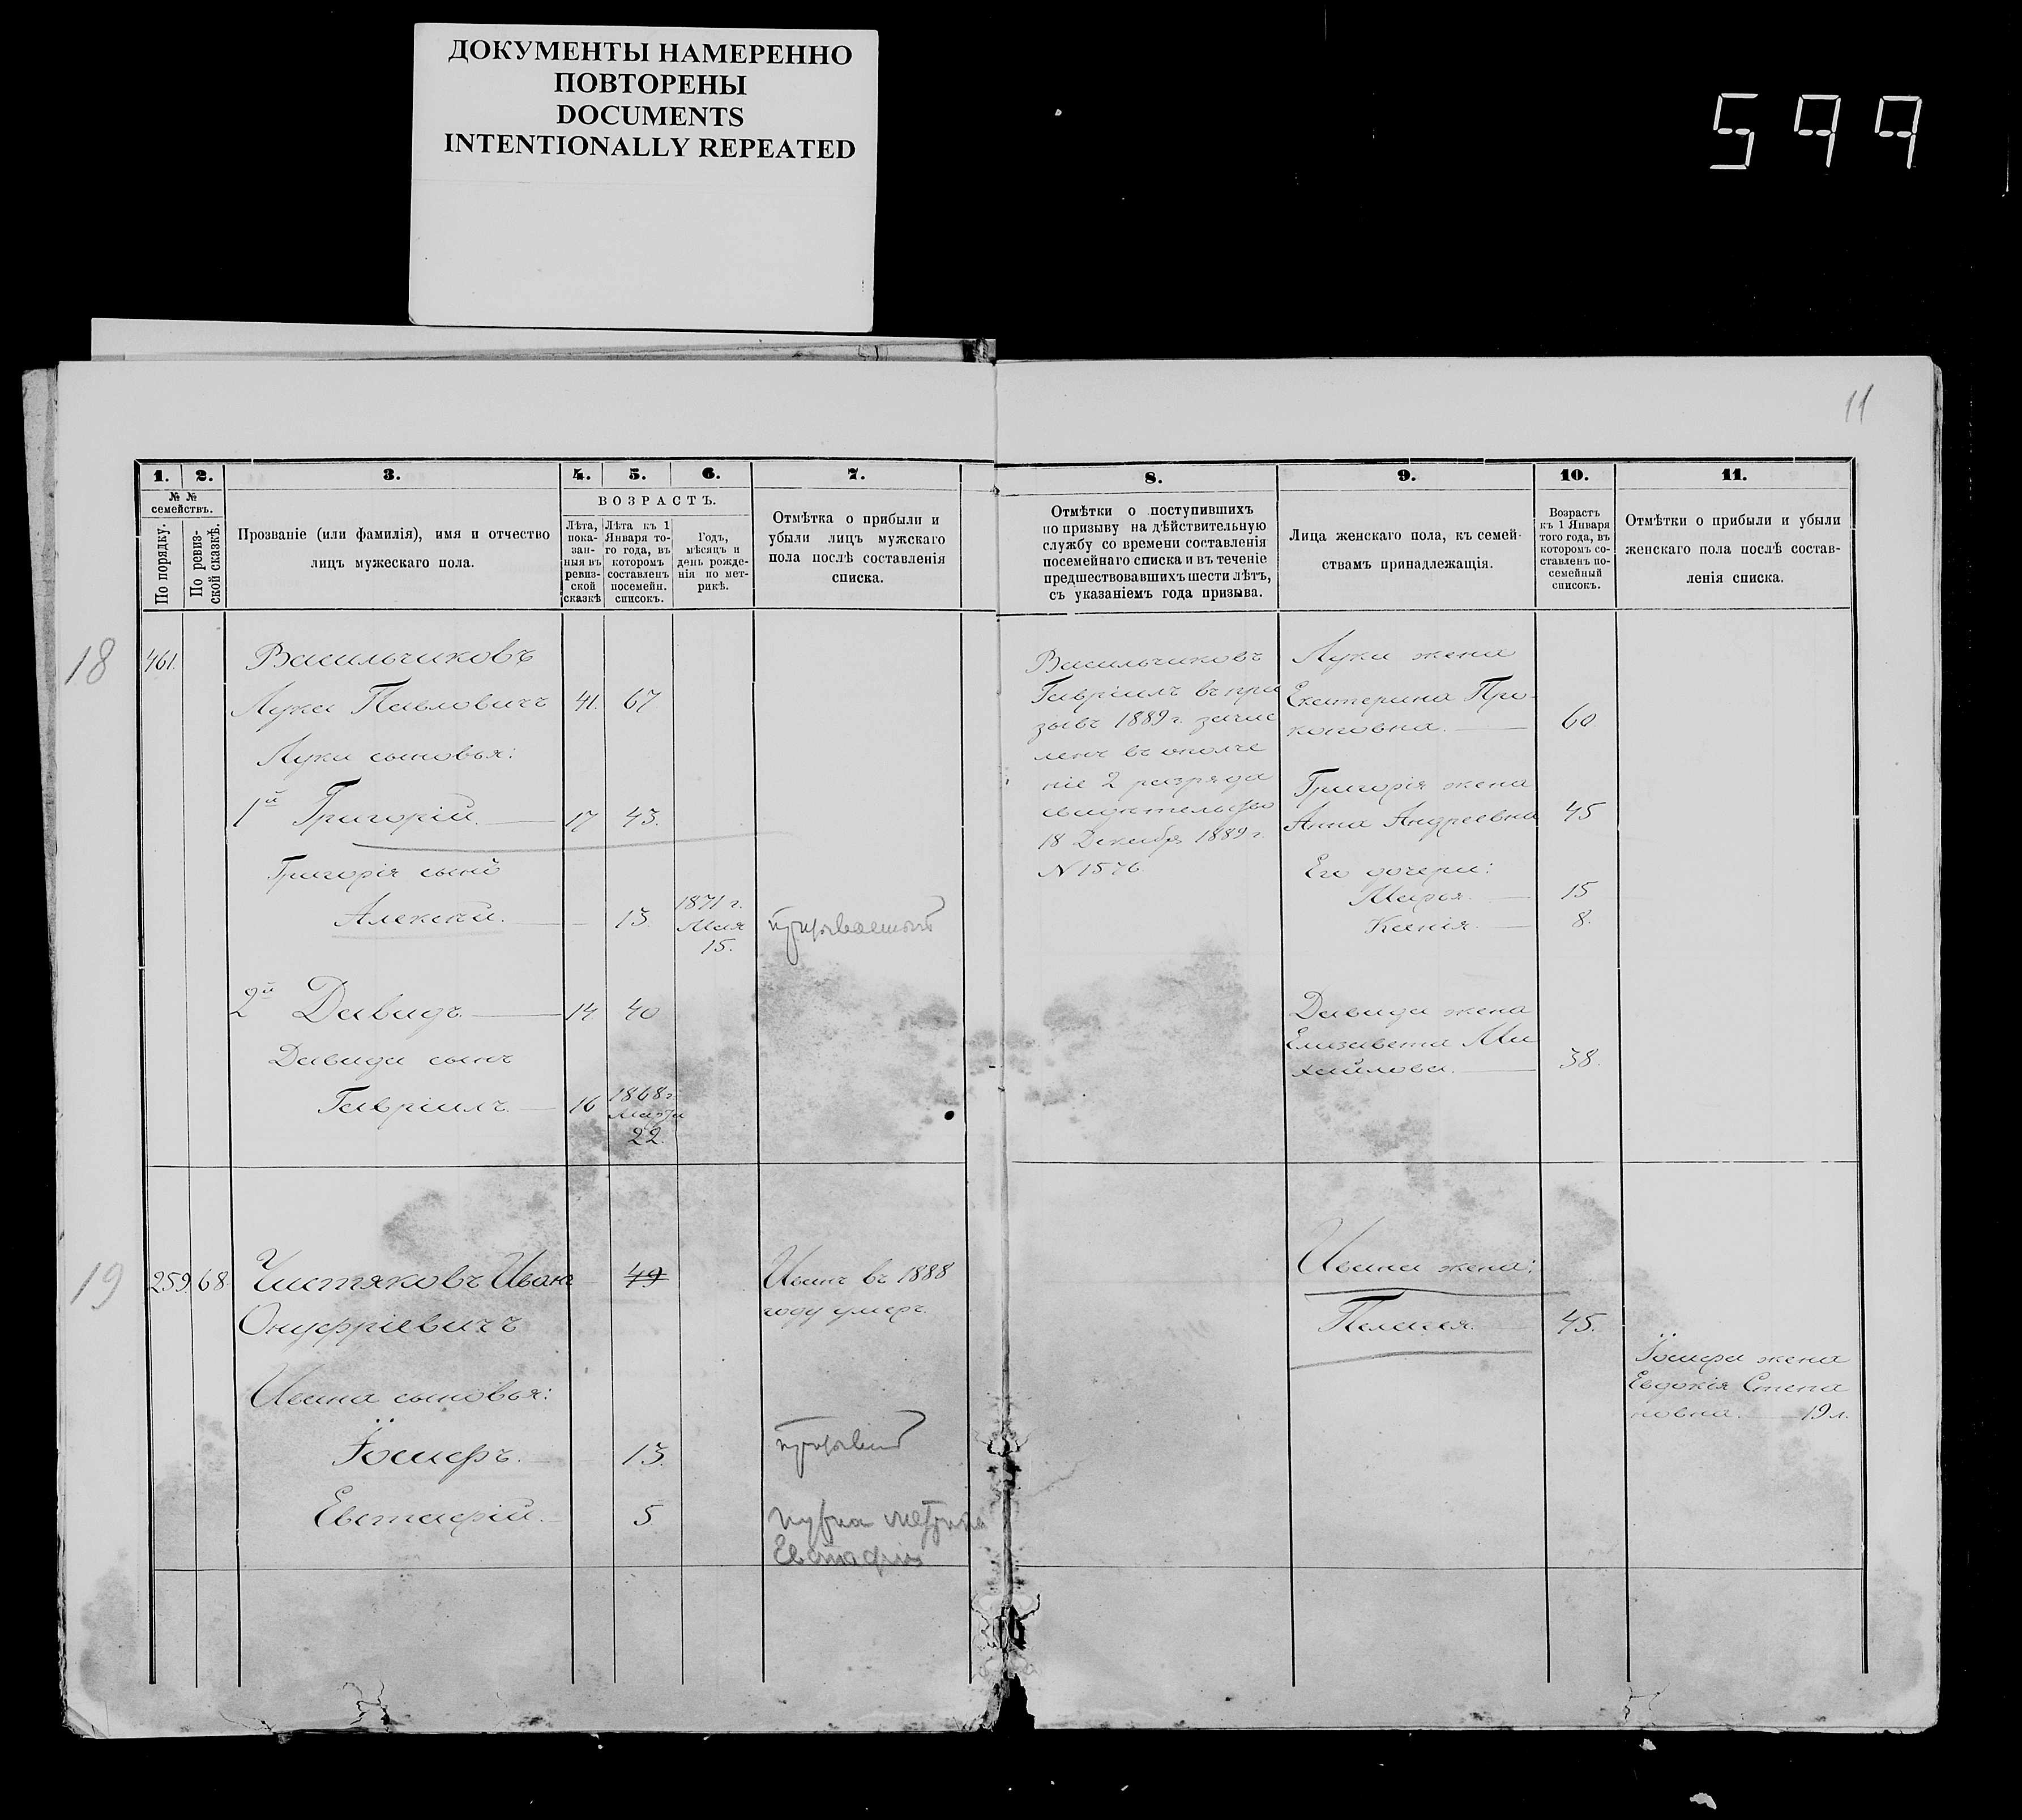 ДОКУМЕНТЫ НАМЕРЕННО
ПОВТОРЕНЫ
DOCUMENTS
INTENTIONALLY REPEATED
599
11
1.
2.
3.
4.
5.
6.
7.
8.
9.
10.
11.
№ №
семействъ.
По порядку.
По ревиз-
ской сказкѣ.
Прозваніе (или фамилія), имя и отчество
лицъ мужескаго пола.
ВОЗРАСТЪ.
Лѣта,
пока-
зан-
ныя въ
ревиз-
ской
сказкѣ
Лѣта къ 1
Января то-
го года, въ
котором
составленъ
посемейн.
списокъ.
Годъ,
мѣсяцъ и
день рожде-
нія по мет-
рикѣ.
Отмѣтка о прибыли и
убыли лицъ мужскаго
пола послѣ составленія
списка.
Отмѣтки о поступившихъ
по призыву на дѣйствительную
службу со времени составленія
посемейнаго списка и въ теченіе
предшествовавшихъ шести лѣтъ,
съ указаніемъ года призыва.
Лица женскаго пола, къ семей-
ствамъ принадлежащія.
Возрастъ
къ 1 Января
того года, въ
которомъ со-
ставленъ по-
семейный
списокъ.
Отмѣтки о прибыли и убыли
женскаго пола послѣ состав-
ленія списка.
18
461.
Васильчиковъ
Лука Павловичъ 41. 67
Луки сыновья:
1й Григорій. 17 43.
Григорія сынъ
Алексѣй. 13. 1871 г.
Мая
15.
призываемый
2й Давидъ. 14 40
Давида сынъ
Гавріилъ. 16 1868 г.
Марта
22.
Васильчиковъ
Гавріилъ въ при
зывъ 1889 г. зачис
ленъ въ ополче
ніе 2 разряда
свидѣтельство
18 Декабря 1889 г.
N 1576
Луки жена
Екатерина Про-
коповна. 60
Григорія жена
Анна Андреевна 45
Его дочери:
Марѳа. 15
Ксенія. 8.
Давида жена
Елизавета Ми
хайлова. 38.
19
259. 68. Чистяковъ Иванъ 49
Онуфріевичъ
Иванъ въ 1888
году умеръ.
Ивана сыновья:
Іосифъ. 13.
Евстафій. 5
Нужна метрика
Евстафія
Ивана жена:
Пелагея. 45.
Іосифа жена
Евдокія Степа
новна. 19 л.